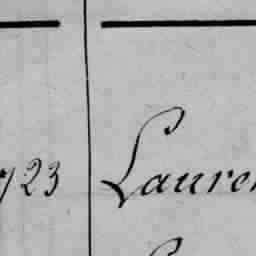 723 Lauren